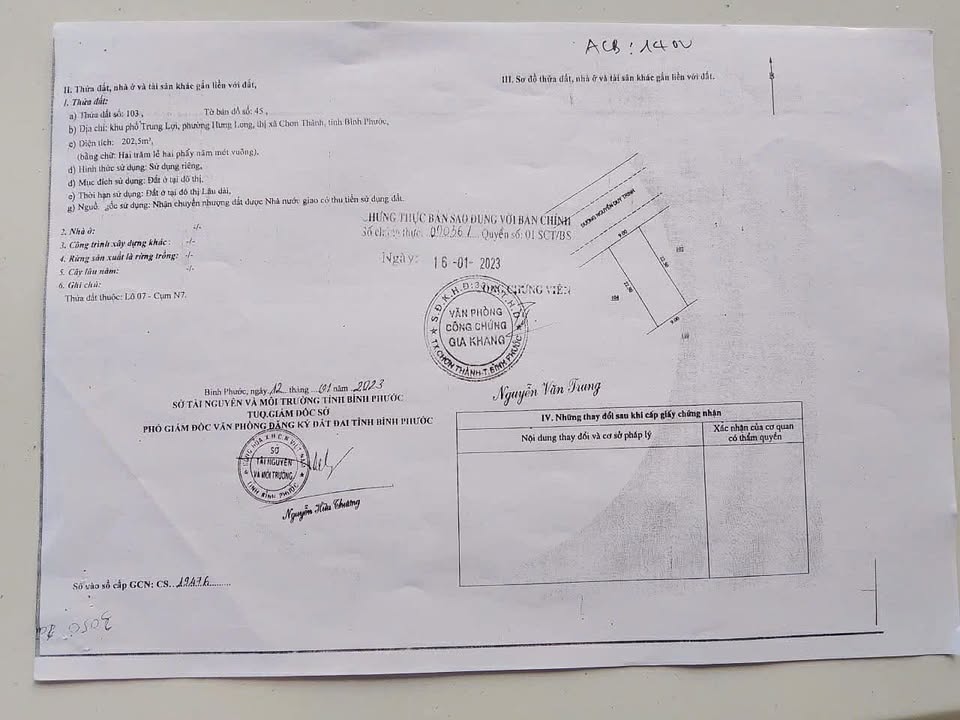 ACB : 14
II. Thửa đất, nhà ở và tài sản khác gắn liền với đất,
1. Thửa đất:
a) Thửa đất số: 103 , Tờ bản đồ số: 45 ,
b) Địa chỉ: khu phố Trung Lợi, phường Hưng Long, thị xã Chơn Thành, tỉnh Bình Phước,
c) Diện tích: 202,5m²,
(bằng chữ: Hai trăm lẻ hai phẩy năm mét vuông),
d) Hình thức sử dụng: Sử dụng riêng,
đ) Mục đích sử dụng: Đất ở tại đô thị,
e) Thời hạn sử dụng: Đất ở tại đô thị Lâu dài,
g) Nguồ gốc sử dụng: Nhận chuyển nhượng đất được Nhà nước giao có thu tiền sử dụng đất.
2. Nhà ở: -/-
3. Công trình xây dựng khác : -/-
4. Rừng sản xuất là rừng trồng: -/-
5. Cây lâu năm: -/-
6. Ghi chú:
Thửa đất thuộc: Lô 07 - Cụm N7.
CHỨNG THỰC BẢN SAO ĐÚNG VỚI BẢN CHÍNH
Số chứng thực: Quyển số: 01 SCT/BS
Ngày: 16 -01- 2023
CÔNG CHỨNG VIÊN
VĂN PHÒNG
CÔNG CHỨNG
GIA KHANG
TX.CHƠN THÀNH-T.BÌNH PHƯỚC
Nguyễn Văn Trung
Bình Phước, ngày 12 tháng 01 năm 2023
SỞ TÀI NGUYÊN VÀ MÔI TRƯỜNG TỈNH BÌNH PHƯỚC
TUQ.GIÁM ĐỐC SỞ
PHÓ GIÁM ĐỐC VĂN PHÒNG ĐĂNG KÝ ĐẤT ĐAI TỈNH BÌNH PHƯỚC
CỘNG HÒA X.H.C.N VIỆT NAM
SỞ
TÀI NGUYÊN
VÀ MÔI TRƯỜNG
TỈNH BÌNH PHƯỚC
Nguyễn Hữu Chương
Số vào sổ cấp GCN: CS..19476........
3050
III. Sơ đồ thửa đất, nhà ở và tài sản khác gắn liền với đất.
B
ĐƯỜNG NGUYỄN DUY TRINH
9.00
102
22.50
22.50
104
9.00
IV. Những thay đổi sau khi cấp giấy chứng nhận
Nội dung thay đổi và cơ sở pháp lý
Xác nhận của cơ quan
có thẩm quyền